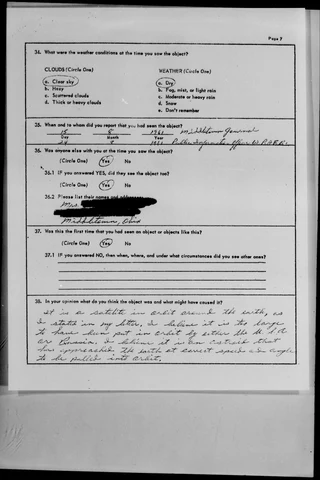 Page 7
34. What were the weather conditions at the time you saw the object?
CLOUDS (Circle One) WEATHER (Circle One)
a. Clear sky a. Dry
b. Hazy b. Fog, mist, or light rain
c. Scattered clouds c. Moderate or heavy rain
d. Thick or heavy clouds d. Snow
e. Don't remember
35. When and to whom did you report that you had seen the object?
18 8 1961 Middletown Journal
Day Month Year
24 8 1961 Public Information Officer W.P.A.F.B.
36. Was anyone else with you at the time you saw the object?
(Circle One) Yes No
36.1 IF you answered YES, did they see the object too?
(Circle One) Yes No
36.2 Please list their names and addresses:
Mrs.
Middletown, Ohio
37. Was this the first time that you had seen an object or objects like this?
(Circle One) Yes No
37.1 IF you answered NO, then when, where, and under what circumstances did you see other ones?
38. In your opinion what do you think the object was and what might have caused it?
It is a satelite in orbit around the earth, as
I stated in my letter. I believe it is too large
to have been put in orbit by either the U.S.A
or Russia. I believe it is an astroid that
has approached the earth at correct speed and angle
to be pulled into orbit.